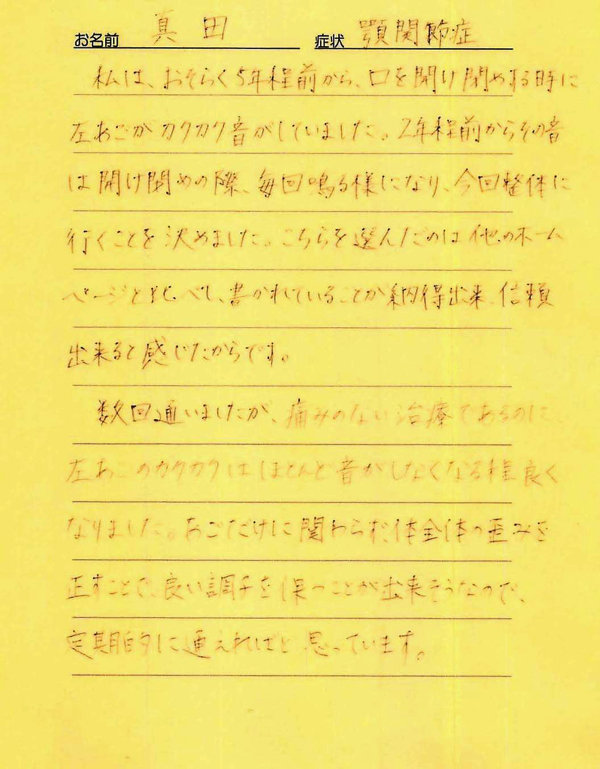 お名前 真田 症状 顎関節症
私は、おそらく5年程前から、口を開け閉めする時に
左あごがカクカク音がしていました。2年程前からその音
は開け閉めの際、毎回鳴る様になり、今回整体に
行くことを決めました。こちらを選んだのは他のホーム
ページと比べ、書かれていることが納得出来、信頼
出来ると感じたからです。
数回通いましたが、痛みのない治療であるのに、
左あごのカクカクはほとんど音がしなくなる程良く
なりました。あごだけに関わらず、体全体の歪みを
正すことで、良い調子を保つことが出来そうなので、
定期的に通えればと思っています。